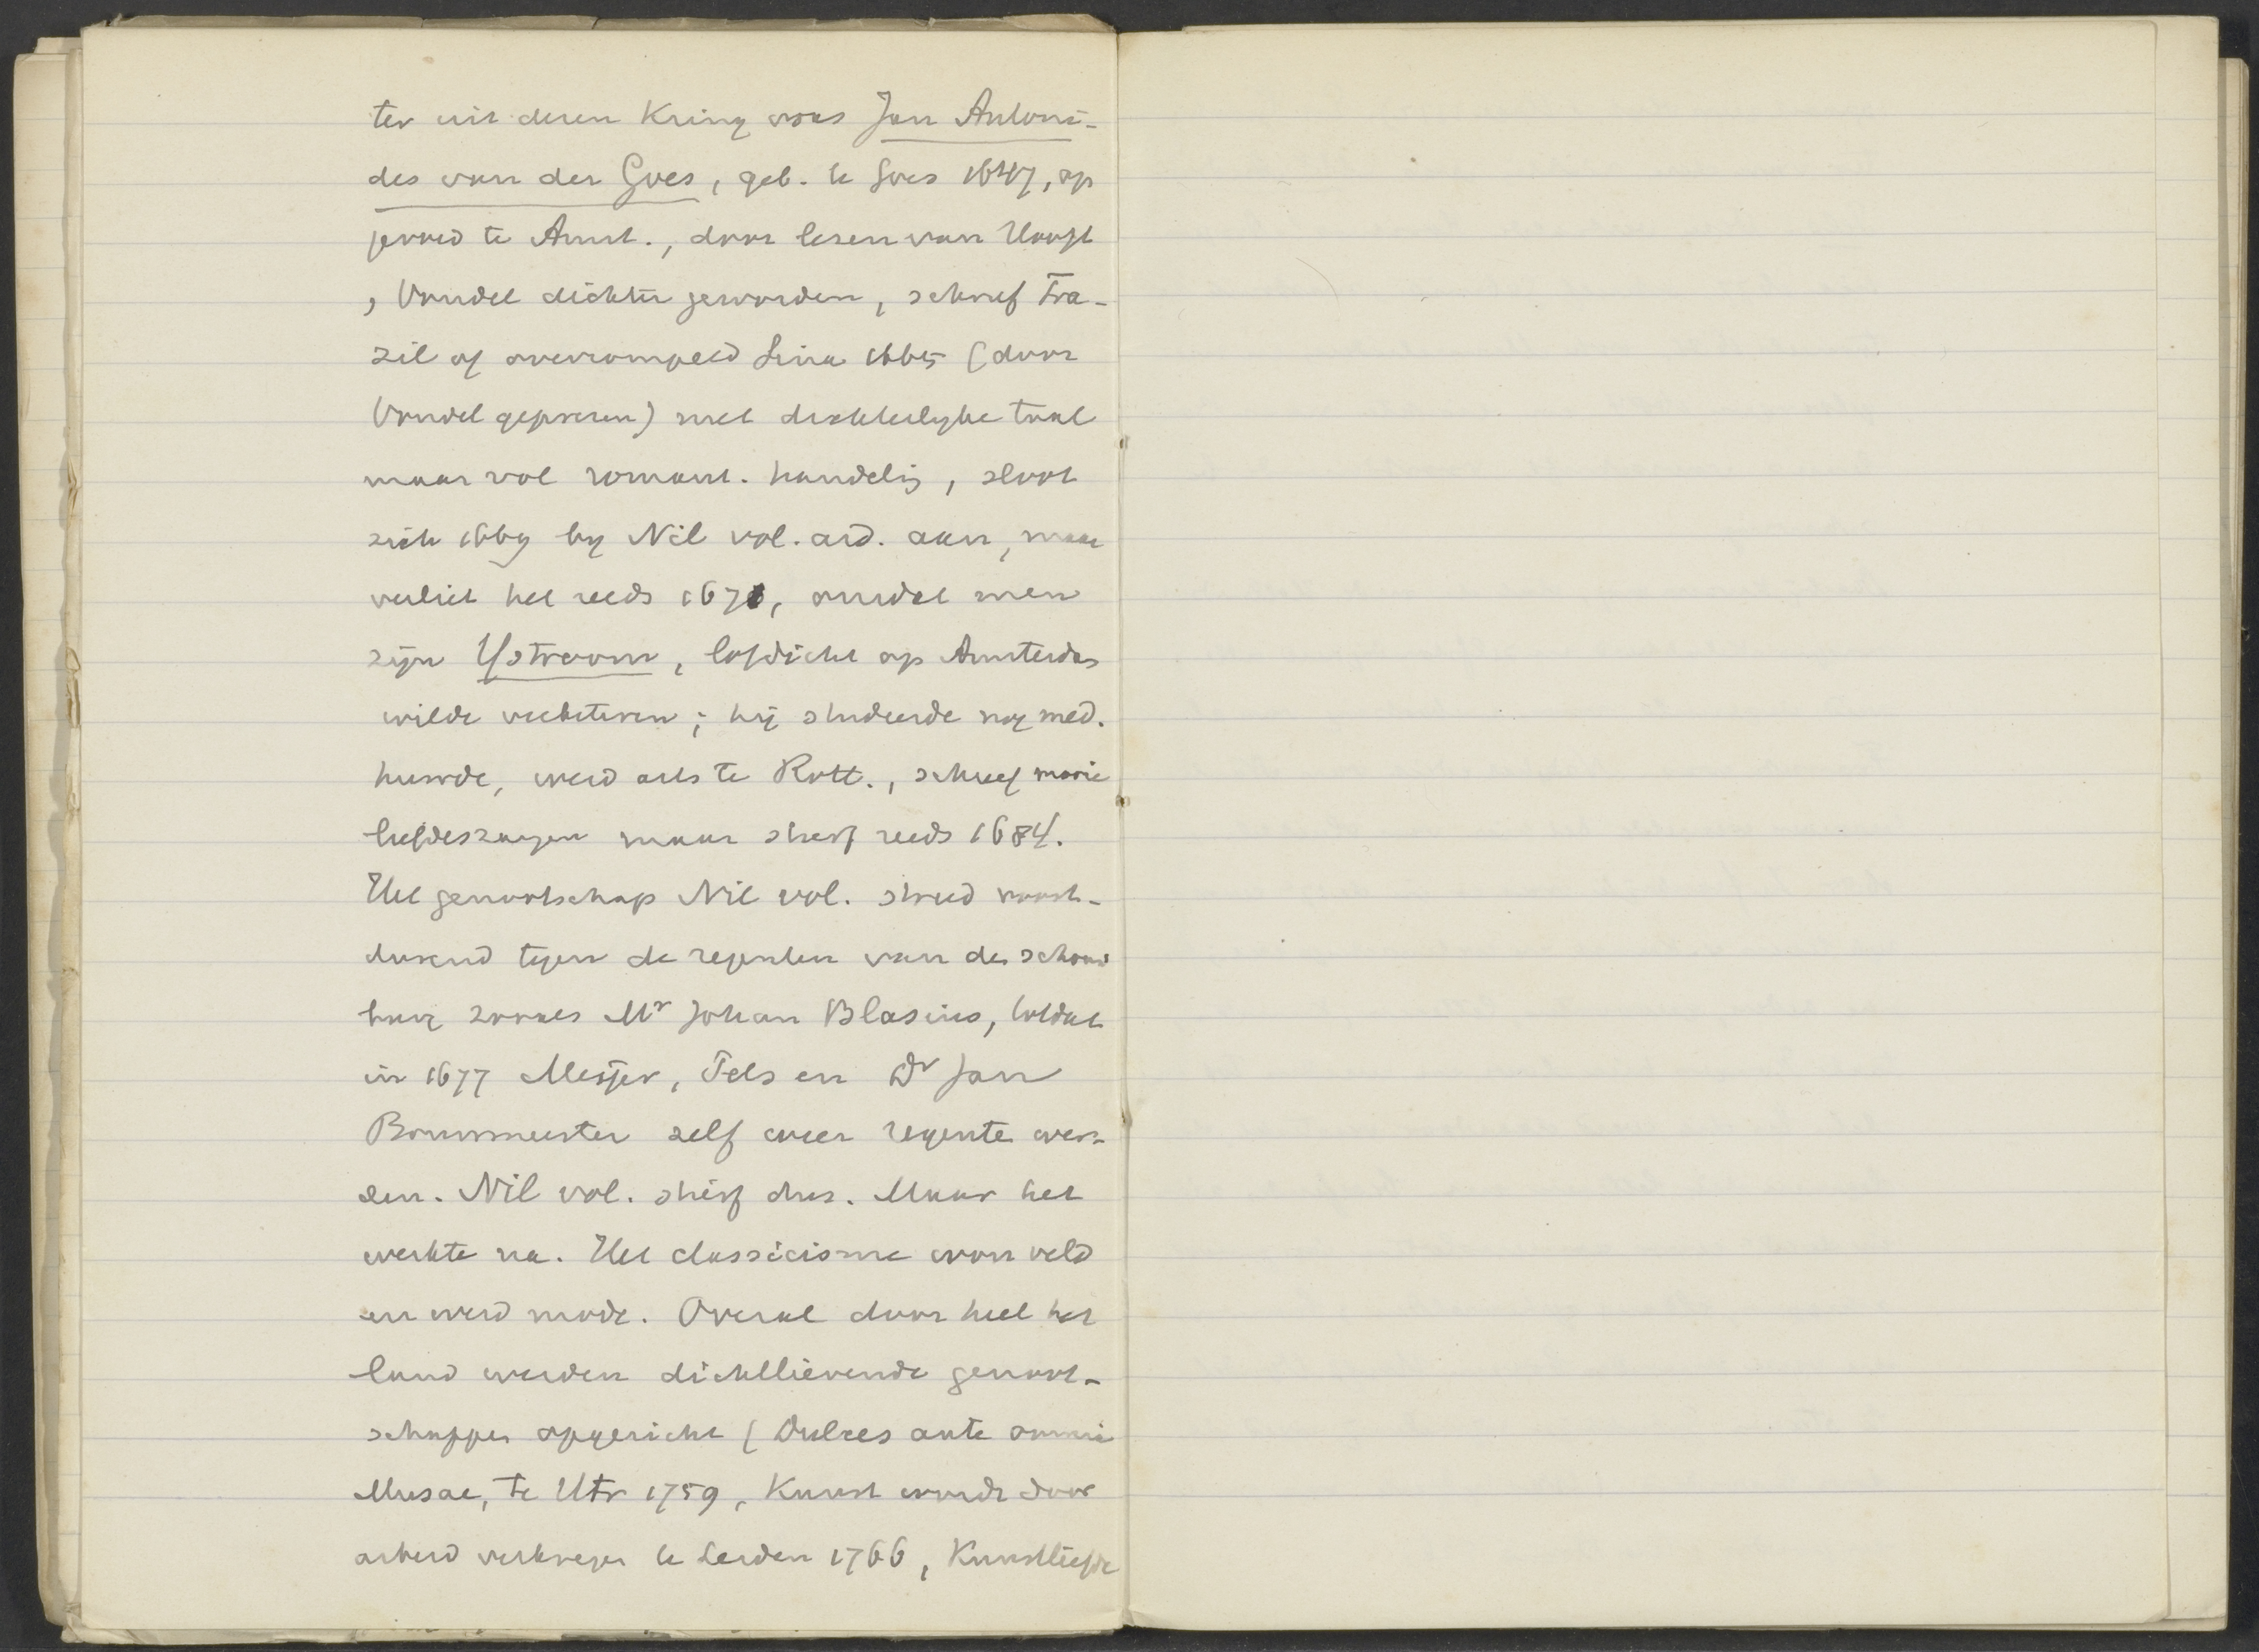 ter uit dezen Kring was Jan Antoni-
des van der Goes, geb. te Goes 1647, op
gevoed te Amst., door lezen van Hooft
, Vondel dichter geworden, schreef Tra-
zil of overrompeld Sina 1665 (door
Vondel geprezen) met dichterlyke taal
maar vol romant. handelig, sloot
zich 1669 by Nil vol. ard. aan, maar
verliet het reeds 1671, omdat men
zijn Ystroom, lofdicht op Amsterdam
wilde verbeteren; hij studeerde nog med.
huwde, werd arts te Rott., schreef mooie
liefdeszangen maar stierf reeds 1684.
Het genootschap Nil vol. streed voort-
durend tegen de regenten van de schouw
burg zooals Mr Johan Blasius, totdat
in 1677 Meijer, Pels en Dr Jan
Bouwmeester zelf weer regente wer-
den. Nil vol. stierf dus. Maar het
werkte na. Het classicisme won veld
en werd mode. Overal door heel het
land werden dichtlievende genoot-
schappen opgericht (Dulces ante omnia
Musae, te Utr 1759, Kunst wordt door
arbeid verkregen te Leiden 1766, Kunstliefde